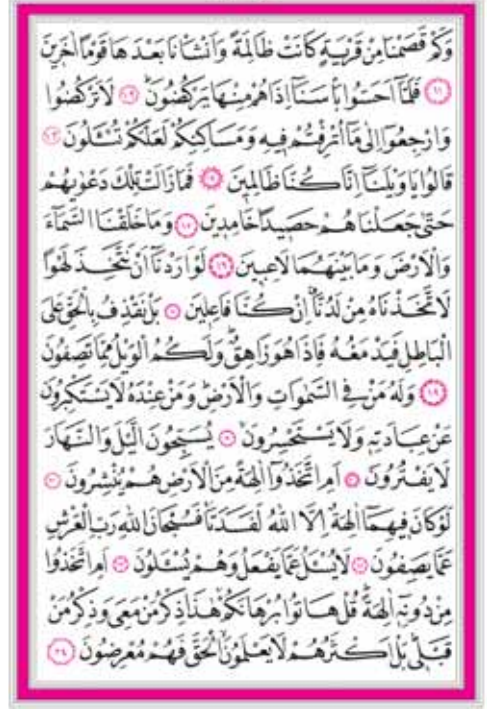 وَكَمْ قَصَمْنَا مِنْ قَرْيَةٍ كَانَتْ ظَالِمَةً وَاَنْشَأْنَا بَعْدَهَا قَوْمًا اٰخَرِينَ
﴿١١﴾ فَلَمَّٓا اَحَسُّوا بَأْسَنَٓا اِذَا هُمْ مِنْهَا يَرْكُضُونَ ﴿١٢﴾ لَا تَرْكُضُوا
وَارْجِعُٓوا اِلٰى مَٓا اُتْرِفْتُمْ فِيهِ وَمَسَاكِنِكُمْ لَعَلَّكُمْ تُسْـَٔلُونَ ﴿١٣﴾
قَالُوا يَا وَيْلَنَٓا اِنَّا كُنَّا ظَالِمِينَ ﴿١٤﴾ فَمَا زَالَتْ تِلْكَ دَعْوٰيهُمْ
حَتّٰى جَعَلْنَاهُمْ حَصِيدًا خَامِدِينَ ﴿١٥﴾ وَمَا خَلَقْنَا السَّمَٓاءَ
وَالْاَرْضَ وَمَا بَيْنَهُمَا لَاعِبِينَ ﴿١٦﴾ لَوْ اَرَدْنَٓا اَنْ نَتَّخِذَ لَهْوًا
لَاتَّخَذْنَاهُ مِنْ لَدُنَّٓا اِنْ كُنَّا فَاعِلِينَ ﴿١٧﴾ بَلْ نَقْذِفُ بِالْحَقِّ عَلَى
الْبَاطِلِ فَيَدْمَغُهُ فَاِذَا هُوَ زَاهِقٌ وَلَكُمُ الْوَيْلُ مِمَّا تَصِفُونَ
﴿١٨﴾ وَلَهُ مَنْ فِي السَّمٰوَاتِ وَالْاَرْضِ وَمَنْ عِنْدَهُ لَا يَسْتَكْبِرُونَ
عَنْ عِبَادَتِهِ وَلَا يَسْتَحْسِرُونَ ﴿١٩﴾ يُسَبِّحُونَ الَّيْلَ وَالنَّهَارَ
لَا يَفْتُرُونَ ﴿٢٠﴾ اَمِ اتَّخَذُٓوا اٰلِهَةً مِنَ الْاَرْضِ هُمْ يُنْشِرُونَ ﴿٢١﴾
لَوْ كَانَ فِيهِمَٓا اٰلِهَةٌ اِلَّا اللّٰهُ لَفَسَدَتَا فَسُبْحَانَ اللّٰهِ رَبِّ الْعَرْشِ
عَمَّا يَصِفُونَ ﴿٢٢﴾ لَا يُسْـَٔلُ عَمَّا يَفْعَلُ وَهُمْ يُسْـَٔلُونَ ﴿٢٣﴾ اَمِ اتَّخَذُوا
مِنْ دُونِهِٓ اٰلِهَةً قُلْ هَاتُوا بُرْهَانَكُمْ هٰذَا ذِكْرُ مَنْ مَعِيَ وَذِكْرُ مَنْ
قَبْلِي بَلْ اَكْثَرُهُمْ لَا يَعْلَمُونَ الْحَقَّ فَهُمْ مُعْرِضُونَ ﴿٢٤﴾